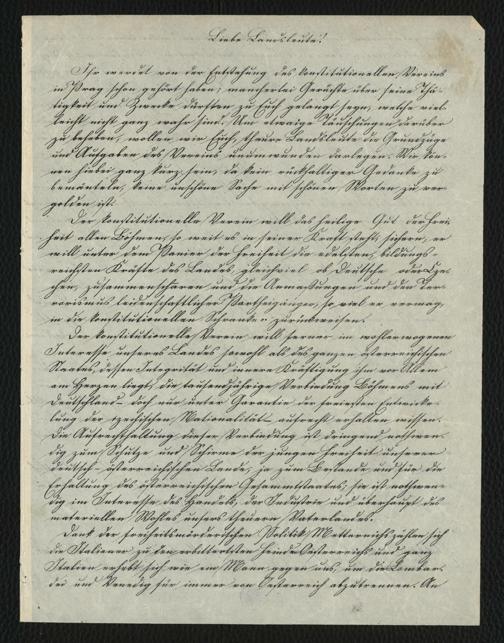 Liebe Landsleute!
Ihr werdet von der Entstehung des konstitutionellen Vereins
in Prag schon gehört haben; mancherlei Gerüchte über seine Thä-
tigkeit und Zwecke dürften zu Euch gelangt seyn, welche viel-
leicht nicht ganz wahr sind. Um etwaige Täuschungen darüber
zu beheben, wollen wir Euch, theure Landsleute die Grundzüge
und Aufgaben des Vereins unumwunden darlegen. Wir kön-
nen hiebei ganz kurz sein, da kein rückhältiger Gedanke zu
bemänteln, keine unschöne Sache mit schönen Worten zu ver-
golden ist.
Der konstitutionelle Verein will das heilige Gut der Frei-
heit allen Böhmen, so weit es in seiner Kraft steht, sichern, er
will unter dem Panier der Freiheit die edelsten, bildungs-
reichsten Kräfte des Landes, gleichviel ob Deutsche oder Cze-
chen, zusammenschaaren und die Anmassungen und den Ter-
rorismus leidenschaftlicher Partheigänger, so viel er vermag,
in die konstitutionellen Schranken zurückweisen.
Der konstitutionelle Verein will ferner im wohlerwogenen
Interesse unseres Landes sowohl als des ganzen österreichischen
Staates, dessen Integrität und innere Kräftigung ihm vor Allem
am Herzen liegt, die tausendjährige Verbindung Böhmens mit
Deutschland – doch nur unter Garantie der freiesten Entwicke-
lung der czechischen Nationalität – aufrecht erhalten wissen.
Die Aufrechthaltung dieser Verbindung ist dringend nothwen-
dig zum Schutze und Schirme der jungen Freiheit unserer
deutsch-österreichischen Lande, ja zum Bestande und für die
Erhaltung des österreichischen Gesammtstaates; sie ist nothwen-
dig im Interesse des Handels, der Industrie und überhaupt des
materiellen Wohles unsers theuern Vaterlandes.
Dank der freiheitsmörderischen Politik Metternichs zählen sich
die Italiener zu den erbittertsten Feinde Oesterreichs und ganz
Italien erhebt sich wie ein Mann gegen uns, um die Lombar-
dei und Venedig für immer von Oesterreich abzutrennen. An